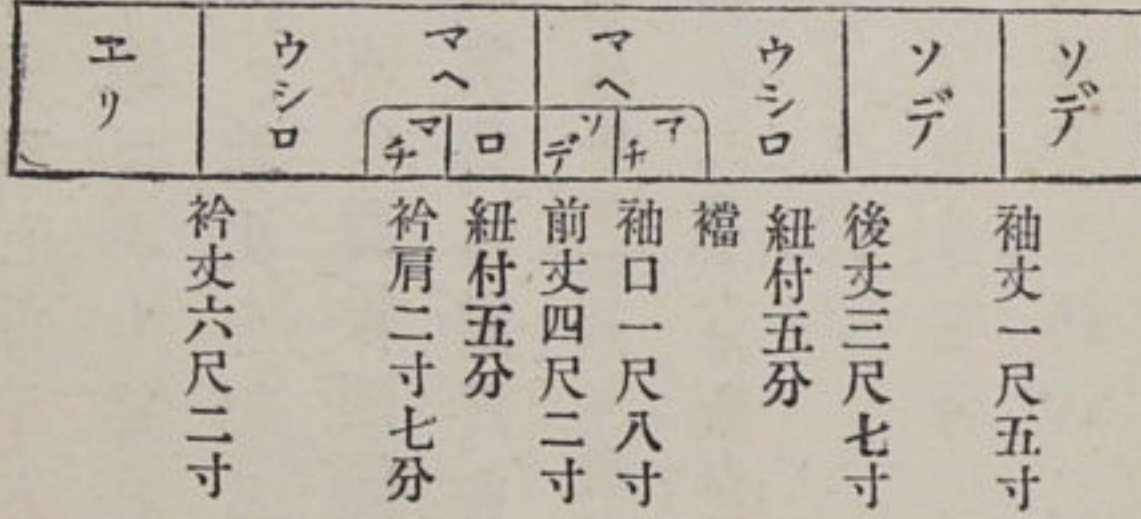 ソデ
ソデ
ウシロ
マヘ
マヘ
ウシロ
エリ
マチ
ソデ
ロ
マチ
袖丈一尺五寸
後丈三尺七寸
紐付五分
襠
袖口一尺八寸
前丈四尺二寸
紐付五分
衿肩二寸七分
衿丈六尺二寸